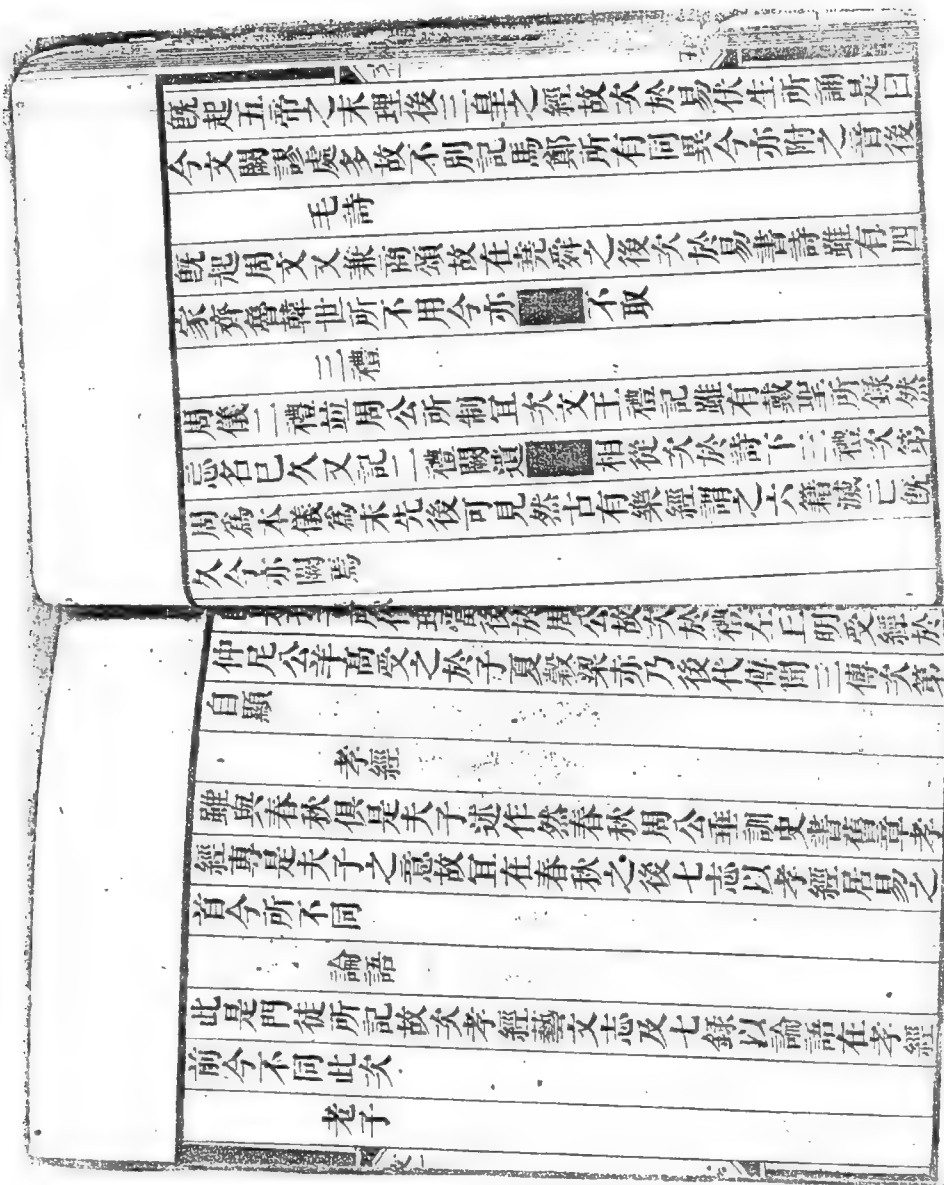 既起五帝之末理後三皇之經故次於易伏生所誦是曰
今文闕謬處多故不別記馬鄭所有同異今亦附之音後
毛詩
既起周文又兼商頌故在堯舜之後次於易書詩雖有四
家齊魯韓世所不用今亦不取
三禮
周儀二禮並周公所制宜次文王禮記雖有戴聖所錄然
忘名已久又記二禮闕遺相從次於詩下三禮次第
周爲本儀爲末先後可見然古有樂經謂之六籍滅亡既
久今亦闕焉
所作理當後於周公故次於禮左丘明受經於
仲尼公羊高受之於子夏穀梁赤乃後代傳聞三傳次第
自顯
孝經
雖與春秋俱是夫子述作然春秋周公垂訓史書舊章孝
經專是夫子之意故宜在春秋之後七志以孝經居易之
首今所不同
論語
此是門徒所記故次孝經藝文志及七錄以論語在孝經
前今不同此次
老子